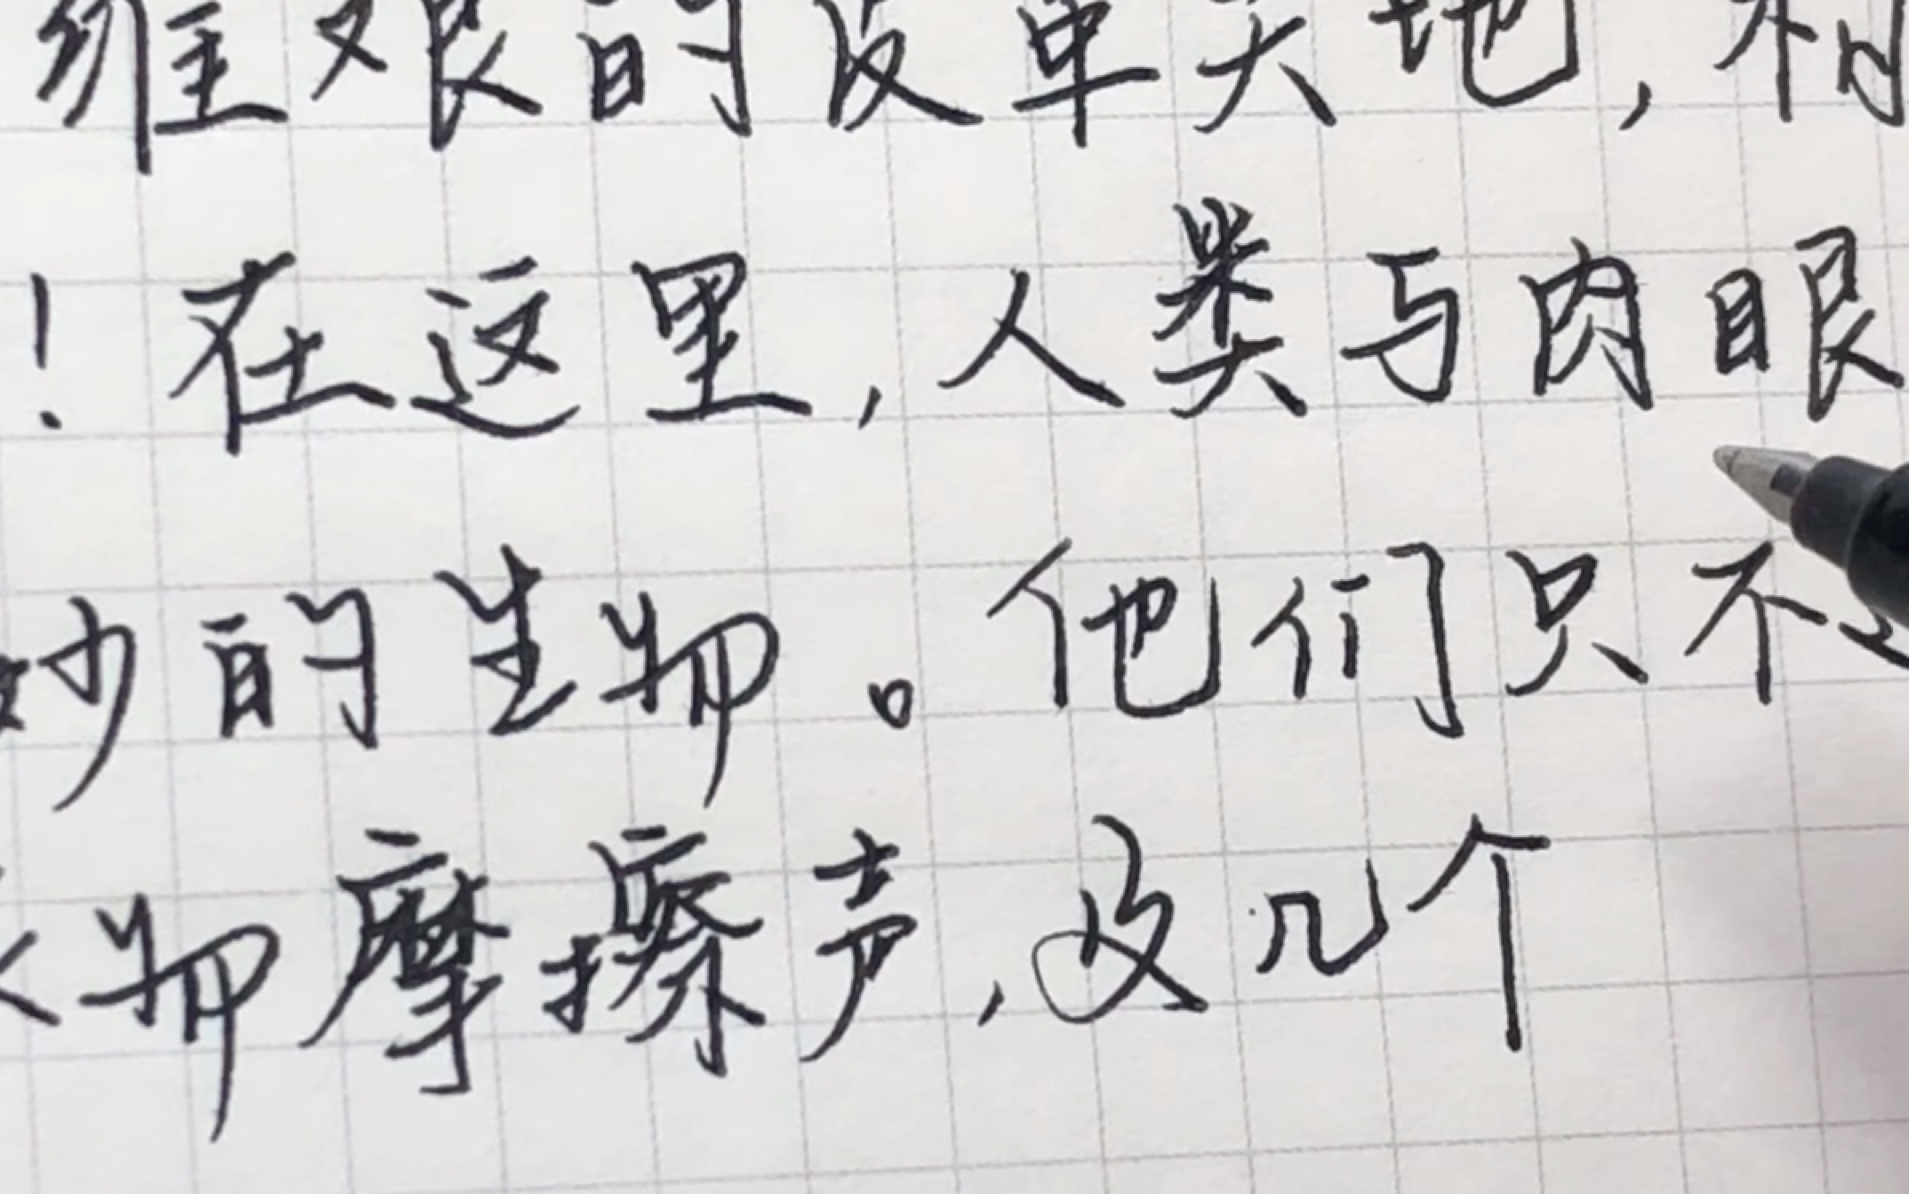 维艰的皮革天地,
!在这里,人类与肉眼
妙的生物。他们只不
物摩擦声,及几个